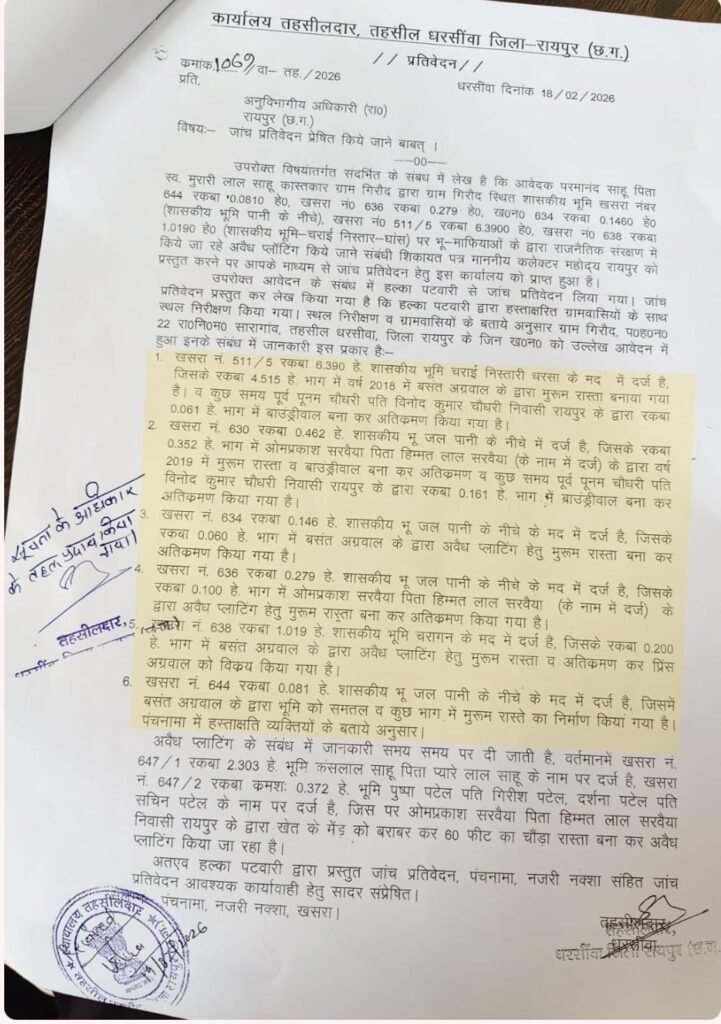 कार्यालय तहसीलदार, तहसील धरसींवा जिला–रायपुर (छ.ग.)
// प्रतिवेदन//
कमांक 1069/वा– तह./2026
धरसींवा दिनांक 18/02/2026
प्रति,
अनुविभागीय अधिकारी (रा0)
रायपुर (छ.ग.)
विषयः– जांच प्रतिवेदन प्रेषित किये जाने बाबत् ।
----00----
उपरोक्त विषयांतर्गत संदर्भित के संबध में लेख है कि आवेदक परमानंद साहू पिता
स्व. मुरारी लाल साहू कास्तकार ग्राम गिरौद द्वारा ग्राम गिरौद स्थित शासकीय भूमि खसरा नंबर
644 रकबा 0.0810 हे0, खसरा नं0 636 रकबा 0.279 हे0, ख0न0 634 रकबा 0.1460 हे0
(शासकीय भूमि पानी के नीचे), खसरा नं0 511/5 रकबा 6.3900 हे0, खसरा नं0 638 रकबा
1.0190 हे0 (शासकीय भूमि–चराई निस्तार–घांस) पर भू–माफियाओ के द्वारा राजनैतिक संरक्षण में
किये जा रहे अवैध प्लॉटिंग किये जाने संबंधी शिकायत पत्र माननीय कलेक्टर महोदय रायपुर को
प्रस्तुत करने पर आपके माध्यम से जांच प्रतिवेदन हेतु इस कार्यालय को प्राप्त हुआ है।
उपरोक्त आवेदन के संबंध में हल्का पटवारी से जांच प्रतिवेदन लिया गया। जांच
प्रतिवेदन प्रस्तुत कर लेख किया गया है कि हल्का पटवारी द्वारा हस्ताक्षरित ग्रामवासियों के साथ
स्थल निरीक्षण किया गया। स्थल निरीक्षण व ग्रामवासियों के बताये अनुसार ग्राम गिरौद, प0ह0न0
22 रा0नि0म0 सारागांव, तहसील धरसीवा, जिला रायपुर के जिन ख0न0 को उल्लेख आवेदन में
हुआ इनके संबंध में जानकारी इस प्रकार है:–
1. खसरा नं. 511/5 रकबा 6.390 हे. शासकीय भूमि चराई निस्तारी धरसा के मद में दर्ज है,
जिसके रकबा 4.515 हे. भाग में वर्ष 2018 में बसंत अग्रवाल के द्वारा मुरूम रास्ता बनाया गया
है। व कुछ समय पूर्व पूनम चौधरी पति विनोद कुमार चौधरी निवासी रायपुर के द्वारा रकबा
0.061 हे. भाग में बाउंड्रीवाल बना कर अतिक्रमण किया गया है।
2. खसरा नं. 630 रकबा 0.462 हे. शासकीय भू जल पानी के नीचे में दर्ज है, जिसके रकबा
0.352 हे. भाग में ओमप्रकाश सरवैया पिता हिम्मत लाल सरवैया (के नाम में दर्ज) के द्वारा वर्ष
2019 में मुरूम रास्ता व बाउंड्रीवाल बना कर अतिक्रमण व कुछ समय पूर्व पूनम चौधरी पति
विनोद कुमार चौधरी निवासी रायपुर के द्वारा रकबा 0.161 हे. भाग में बाउंड्रीवाल बना कर
अतिक्रमण किया गया है।
3. खसरा नं. 634 रकबा 0.146 हे. शासकीय भू जल पानी के नीचे के मद में दर्ज है, जिसके
रकबा 0.060 हे. भाग में बसंत अग्रवाल के द्वारा अवैध प्लाटिंग हेतु मुरूम रास्ता बना कर
अतिक्रमण किया गया है।
4. खसरा नं. 636 रकबा 0.279 हे. शासकीय भू जल पानी के नीचे के मद में दर्ज है, जिसके
रकबा 0.100 हे. भाग में ओमप्रकाश सरवैया पिता हिम्मत लाल सरवैया (के नाम में दर्ज) के
द्वारा अवैध प्लाटिंग हेतु मुरूम रास्ता बना कर अतिक्रमण किया गया है।
5. खसरा नं. 638 रकबा 1.019 हे. शासकीय भूमि चरागन के मद में दर्ज है, जिसके रकबा 0.200
हे. भाग में बसंत अग्रवाल के द्वारा अवैध प्लाटिंग हेतु मुरूम रास्ता व अतिक्रमण कर प्रिंस
अग्रवाल को विक्रय किया गया है।
6. खसरा नं. 644 रकबा 0.081 हे. शासकीय भू जल पानी के नीचे के मद में दर्ज है, जिसमें
बसंत अग्रवाल के द्वारा भूमि को समतल व कुछ भाग में मुरूम रास्ते का निर्माण किया गया है।
पंचनामा में हस्ताक्षति व्यक्तियों के बताये अनुसार।
अवैध प्लाटिंग के संबंध में जानकारी समय समय पर दी जाती है, वर्तमानमें खसरा नं.
647/1 रकबा 2.303 हे. भूमि कंसलाल साहू पिता प्यारे लाल साहू के नाम पर दर्ज है, खसरा
नं. 647/2 रकबा क्रमशः 0.372 हे. भूमि पुष्पा पटेल पति गिरीश पटेल, दर्शना पटेल पति
सचिन पटेल के नाम पर दर्ज है, जिस पर ओमप्रकाश सरवैया पिता हिम्मत लाल सरवैया
निवासी रायपुर के द्वारा खेत के मेंड़ को बराबर कर 60 फीट का चौंड़ा रास्ता बना कर अवैध
प्लाटिंग किया जा रहा है।
अतएव हल्का पटवारी द्वारा प्रस्तुत जांच प्रतिवेदन, पंचनामा, नजरी नक्शा संहित जांच
प्रतिवेदन आवश्यक कार्यावाही हेतु सादर संप्रेषित।
पंचनामा, नजरी नक्शा, खसरा।
सूचना के अधिकार
के तहत प्रदाय किया
गया।
तहसीलदार,
तहसीलदार,
धरसींवा
धरसींवा जिला रायपुर (छ.ग.